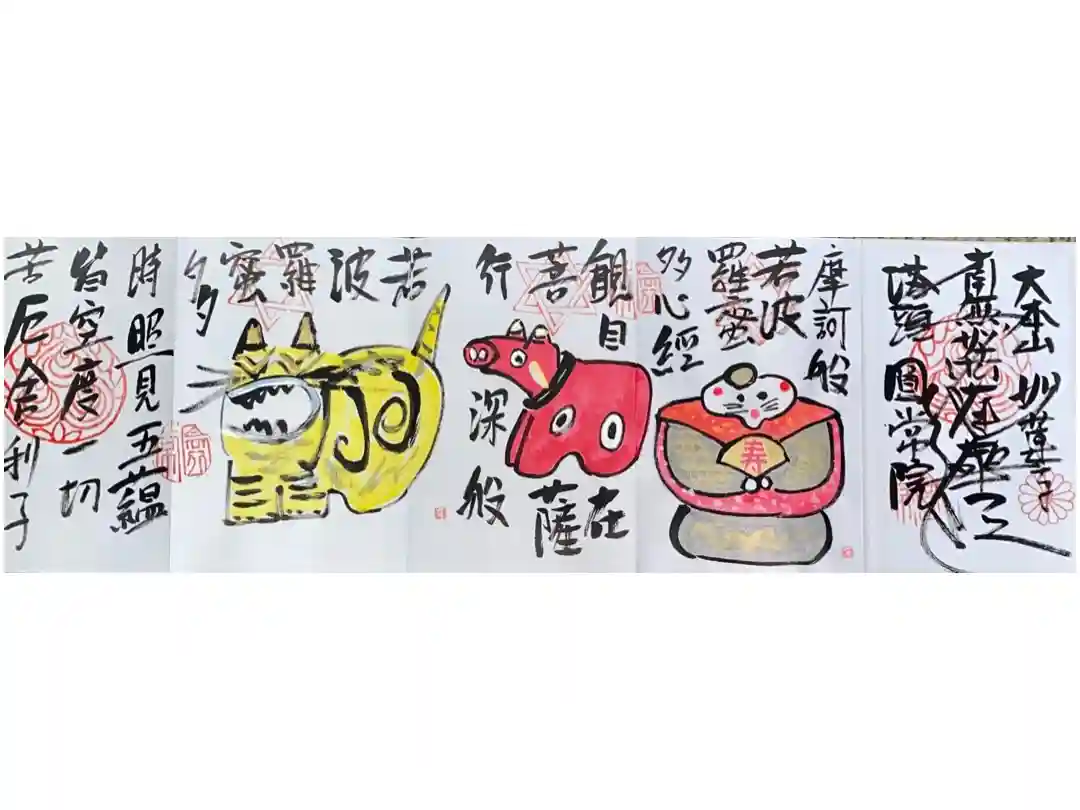 大本山 妙蓮寺
南無妙法蓮華経
圓常院
摩訶般
若波
羅蜜
多心經
寿
観自在
菩薩
行深般
若波羅蜜多
時照見五蘊
皆空度一切
苦厄舎利子